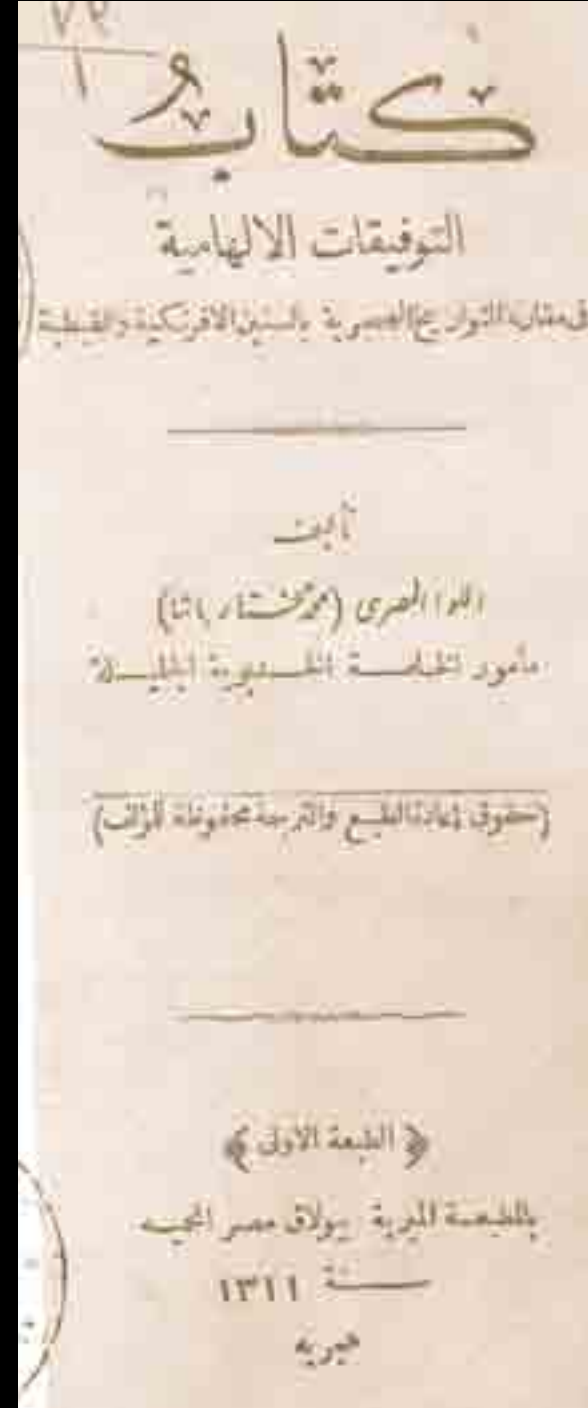 ٧٢
١
كتاب
التوفيقات الالهامية
فى مقارنة التواريخ الهجرية بالسنين الافرنكية والقبطية
تأليف
اللوا المصرى (محمد مختار باشا)
مأمور الخاصة الخديوية الجليلة
(حقوق إعادة الطبع والترجمة محفوظة للمؤلف)
﴿ الطبعة الاولى ﴾
بالمطبعة الميرية ببولاق مصر المحميه
سنة ١٣١١
هجريه